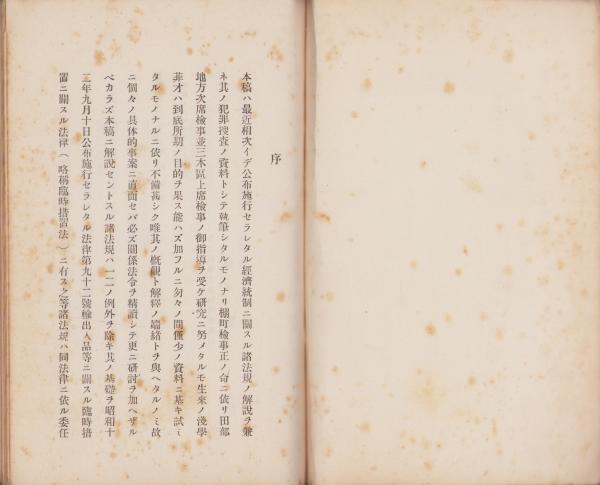 序
本稿ハ最近相次イデ公布施行セラレタル經濟統制ニ關スル諸法規ノ解說ヲ兼
ネ其ノ犯罪搜査ノ資料トシテ執筆シタルモノナリ棚町檢事正ノ命ニ依リ田部
地方次席檢事並三木區上席檢事ノ御指導ヲ受ケ硏究ニ努メタルモ生來ノ淺學
菲才ハ到底所期ノ目的ヲ果ス能ハズ加フルニ匆々ノ間僅少ノ資料ニ基キ試ミ
タルモノナルニ依リ不備甚シク唯其ノ槪觀ト解釋ノ端緖トヲ與ヘタルノミ故
ニ個々ノ具體的事案ニ直面セバ必ズ關係法令ヲ精讀シテ更ニ硏討ヲ加ヘザル
ベカラズ本稿ニ解說セントスル諸法規ハ一二ノ例外ヲ除キ其ノ基礎ヲ昭和十
二年九月十日公布施行セラレタル法律第九十二號輸出入品等ニ關スル臨時措
置ニ關スル法律（略稱臨時措置法）ニ有ス之等諸法規ハ同法律ニ依ル委任